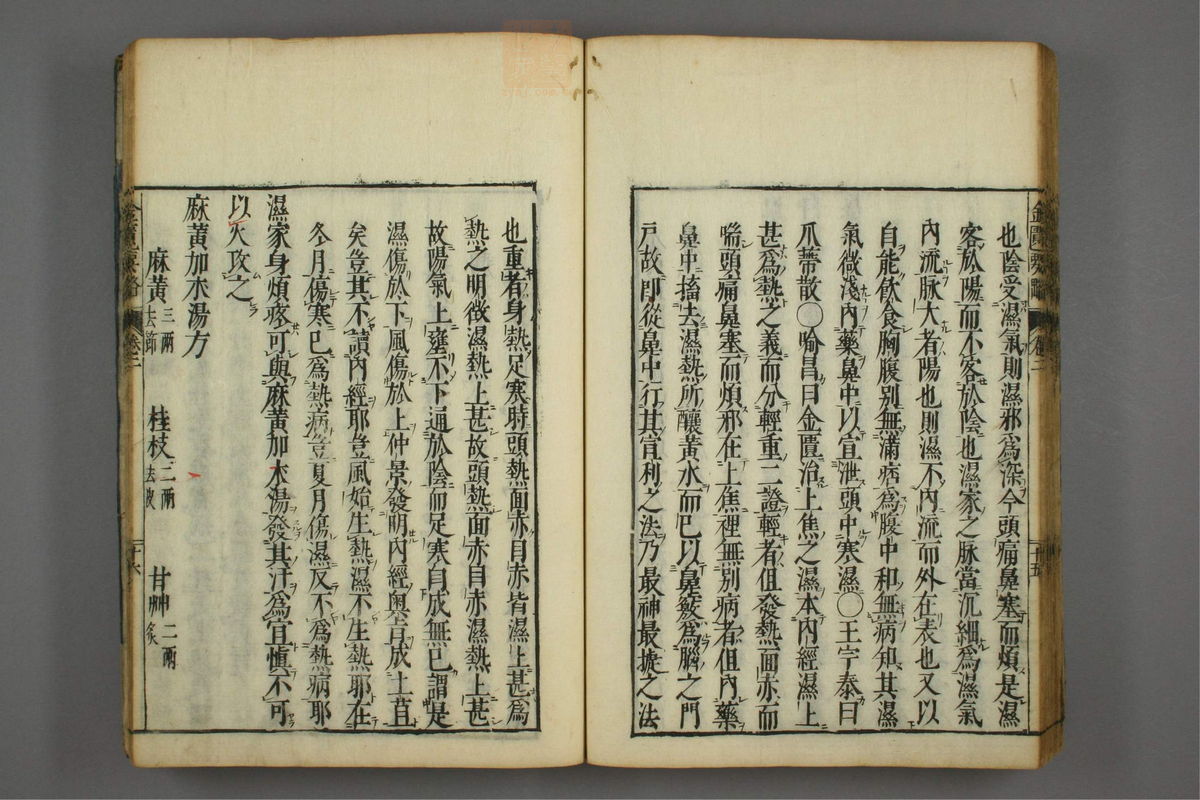 也陰受濕氣則濕邪爲深今頭痛鼻塞而煩是濕
客於陽而不客於陰也濕家之脉當沉細爲濕氣
内流脉大者陽也則濕不内流而外在表也又以
自能飮食胸腹别無滿痞爲腹中和無病知其濕
氣微淺内藥鼻中以宣泄頭中寒濕〇王宇泰曰
瓜蒂散〇喻昌曰金匱治上焦之濕本内經濕上
甚爲熱之義而分輕重二證輕者但發熱面赤而
喘頭痛鼻塞而煩邪在上焦裡無别病者但内藥
鼻中搐去濕熱所釀黄水而已以鼻竅爲腦之門
戸故即從鼻中行其宣利之法乃最神最捷之法
金匱要畧 卷二 十五
也重者身熱足寒時頭熱面赤目赤皆濕上甚爲
熱之明徵濕熱上甚故頭熱面赤目赤濕熱上甚
故陽氣上壅不下通於陰而足寒自成無已謂是
濕傷於下風傷於上仲景發明内經奥旨成上苴
矣豈其不讀内經耶豈風始生熱濕不生熱耶在
冬月傷寒已爲熱病豈夏月傷濕反不爲熱病耶
濕家身煩疼可與麻黄加朮湯發其汗爲宜愼不可
以火攻之
麻黄加朮湯方
麻黄三兩去節 桂枝二兩去皮 甘艸二兩炙
金匱要畧 卷二 十六